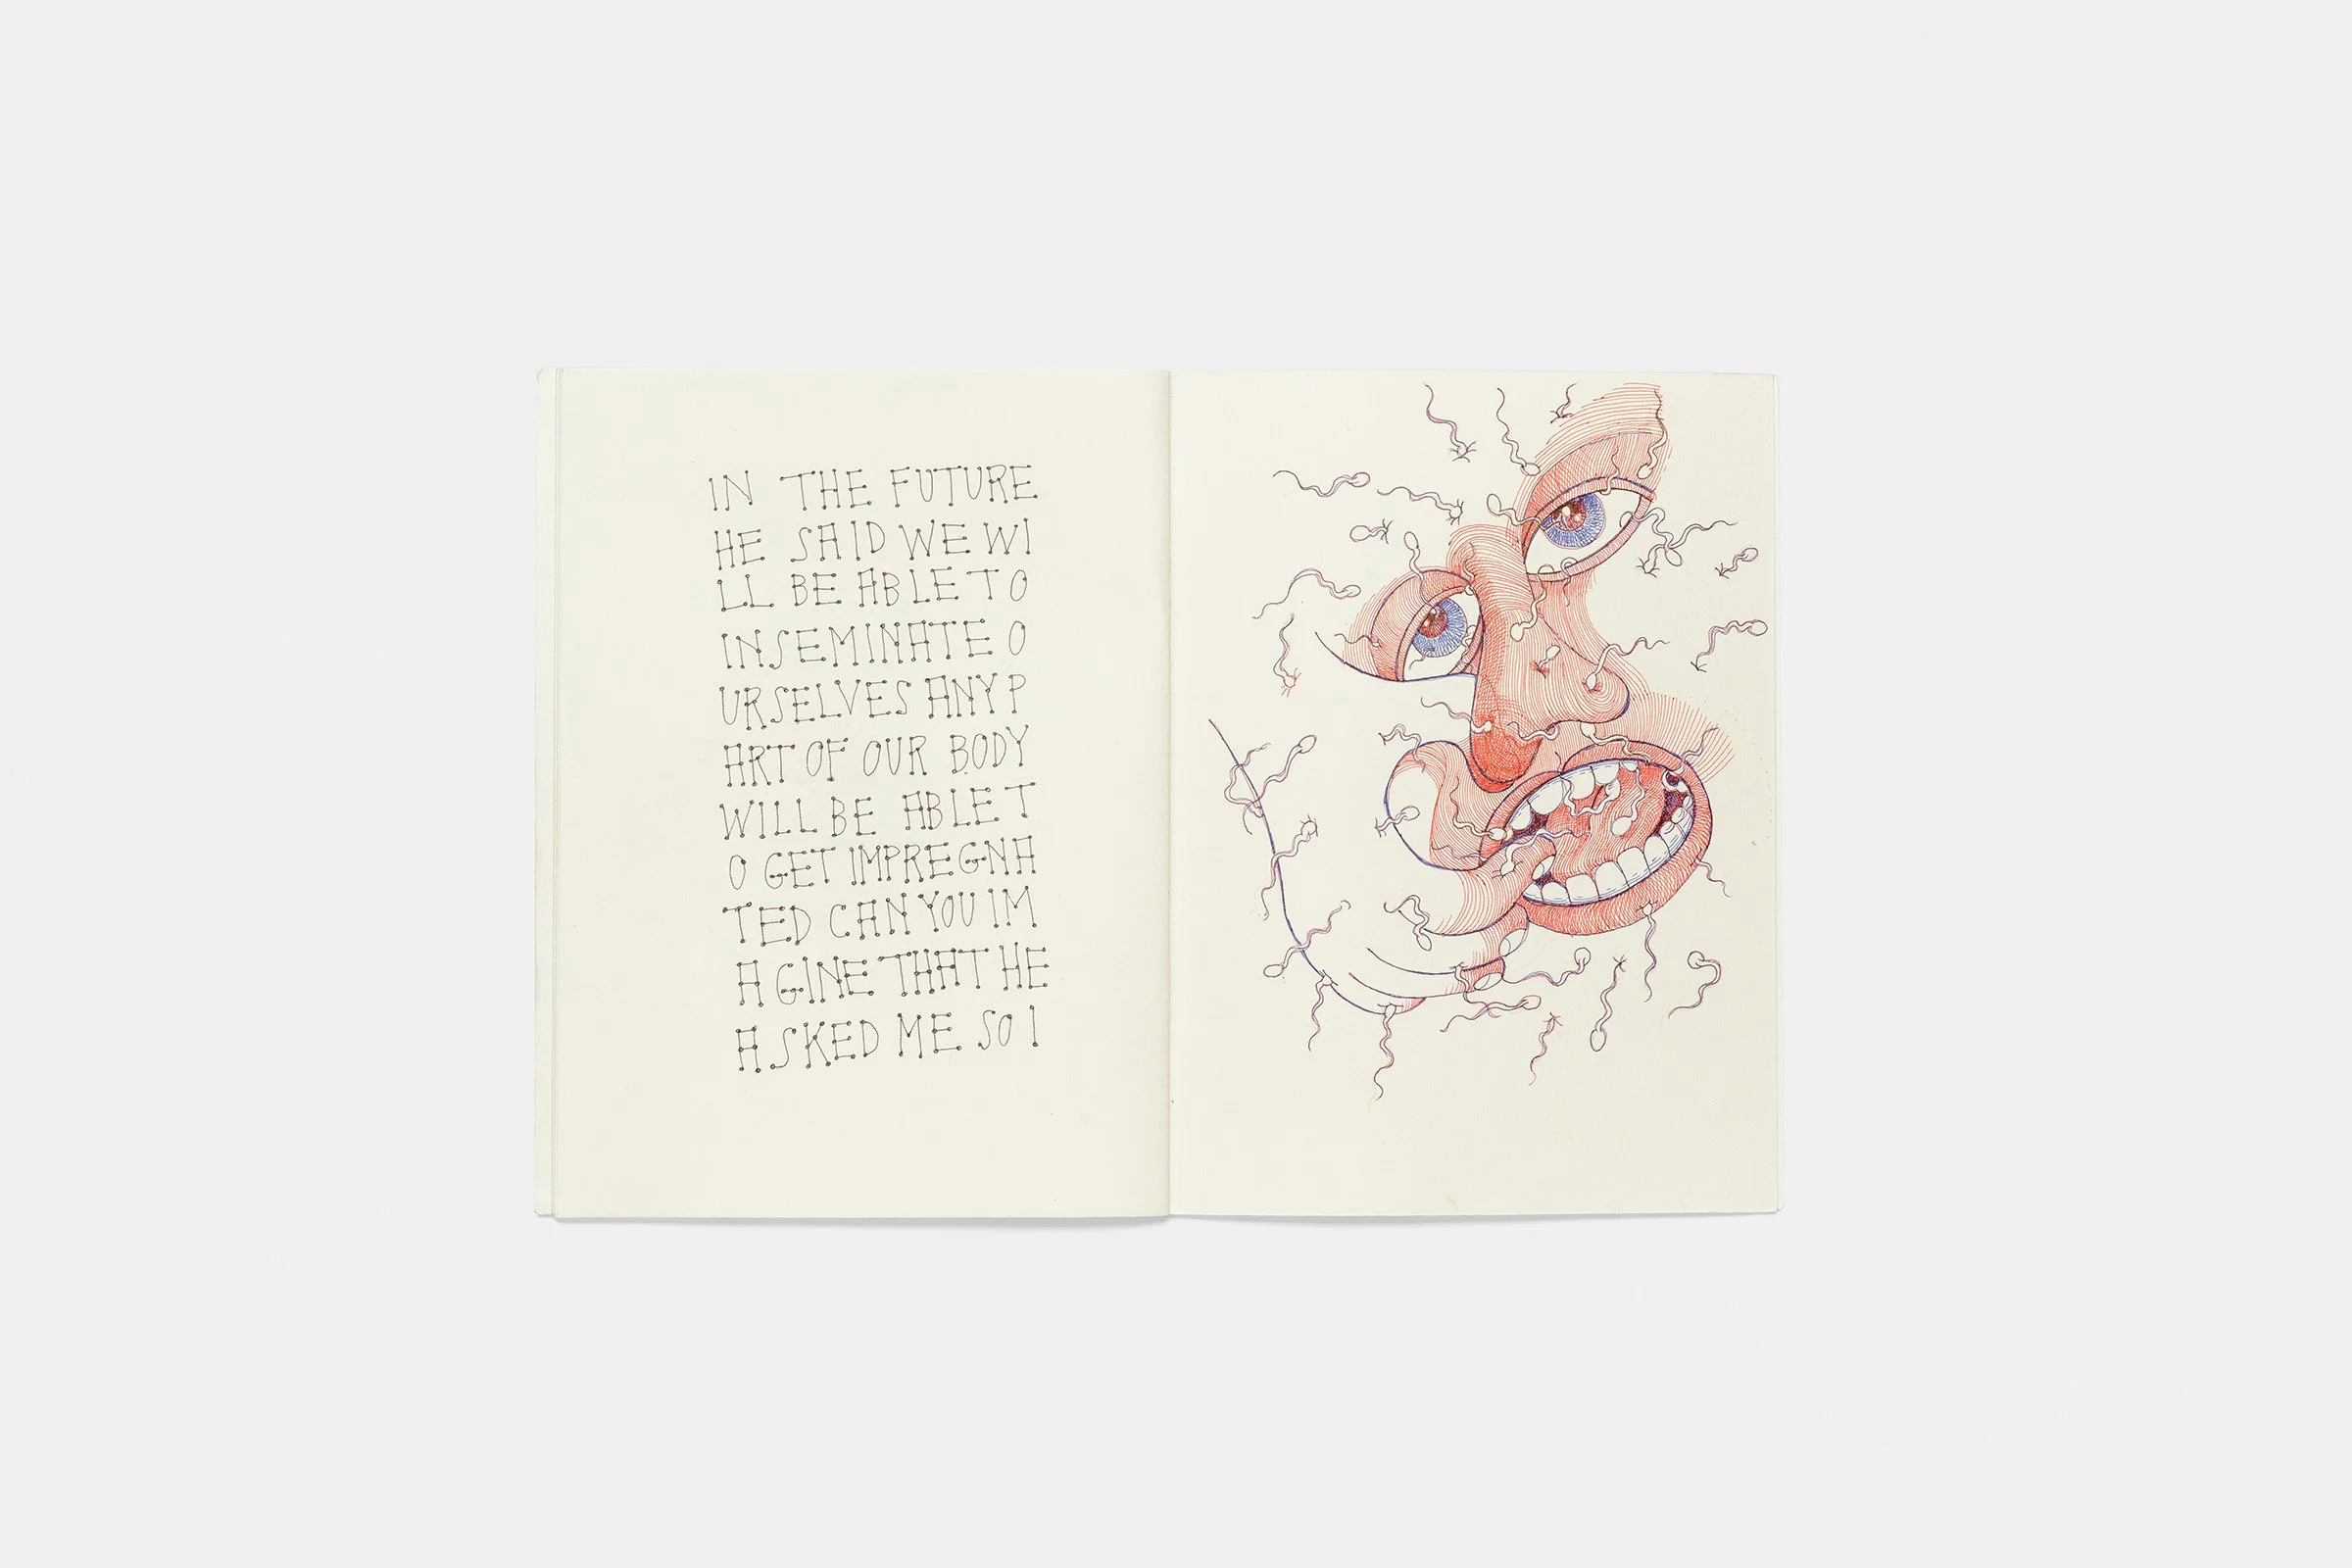 IN THE FUTURE
HE SAID WE WI
LL BE ABLE TO
INSEMINATE O
URSELVES ANY P
ART OF OUR BODY
WILL BE ABLE T
O GET IMPREGNA
TED CAN YOU IM
AGINE THAT HE
ASKED ME SO I